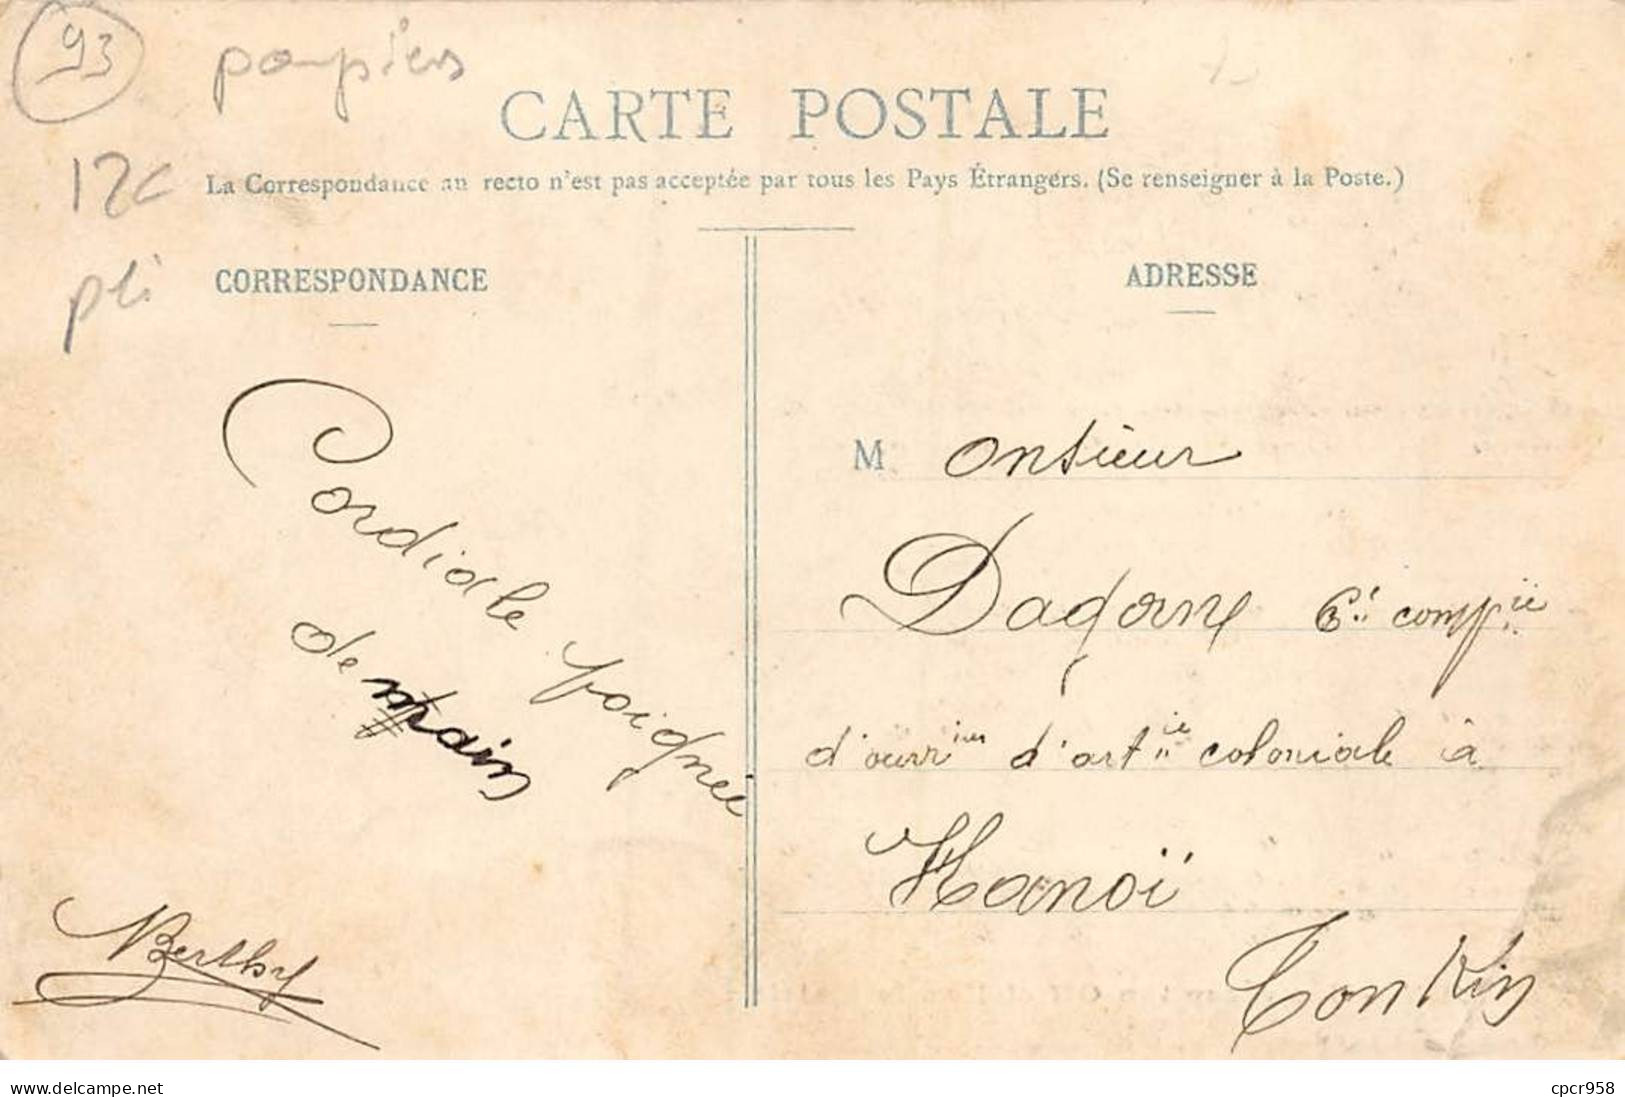 93
pompiers
12c
pli
CARTE POSTALE
La Correspondance au recto n'est pas acceptée par tous les Pays Étrangers. (Se renseigner à la Poste.)
CORRESPONDANCE
Cordiale poignée
de main
ADRESSE
M onsieur
Dagorne 6è compie
d'ouvriers d'artie coloniale à
Hanoï
Tonkin
www.delcampe.net
cpcr958